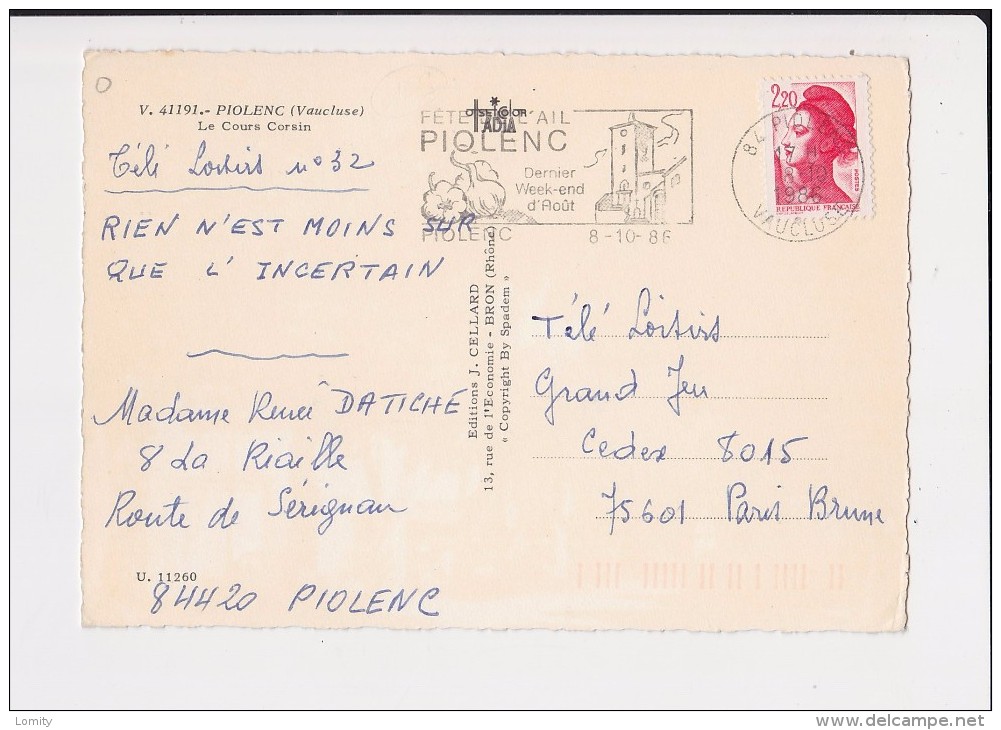 V. 41191.- PIOLENC (Vaucluse)
Le Cours Corsin
Télé Loisirs n° 32
RIEN N'EST MOINS SUR
QUE L' INCERTAIN
Madame Renée DATICHE
8 La Riaille
Route de Sérignan
U. 11260
84420 PIOLENC
FÊTE DE L'AIL
PIOLENC
Dernier
Week-end
d'Août
PIOLENC 8-10-86
Editions J. CELLARD
13, rue de l'Economie - BRON (Rhône)
« Copyright By Spadem »
2,20
POSTES
REPUBLIQUE FRANÇAISE
84 PIOLENC
17 H
8-10
1986
VAUCLUSE
Télé Loisirs
Grand Jeu
Cedex 8015
75601 Paris Brune
Lomity
www.delcampe.net